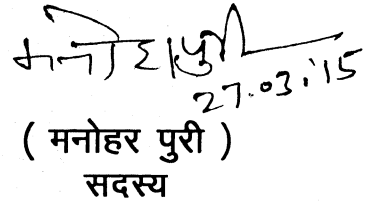 मनोहर पुरी
27.03.'15
( मनोहर पुरी )
सदस्य